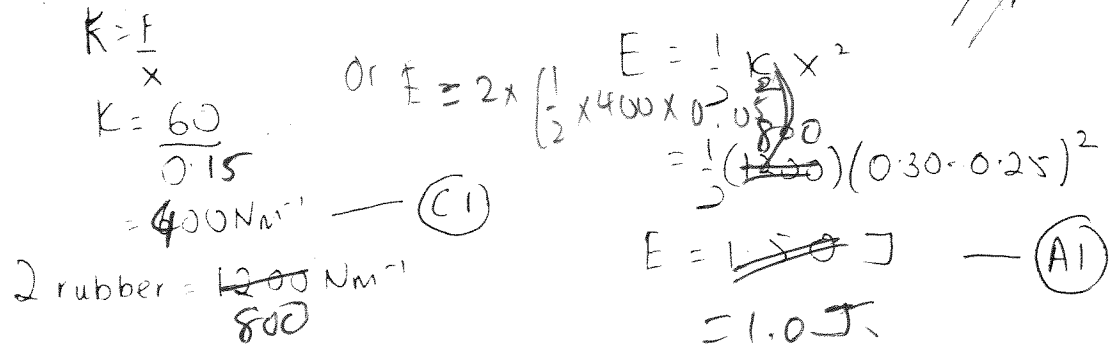 K = F/x
K = 60/0.15
= 400 Nm⁻¹ — (C1)
2 rubber = 1200 Nm⁻¹
800
Or E = 2 × (1/2 × 400 × 0.05²)
E = 1/2 K x²
= 1/2 (1200) (0.30 - 0.25)²
800
E = 1.50 J — (A1)
= 1.0 J